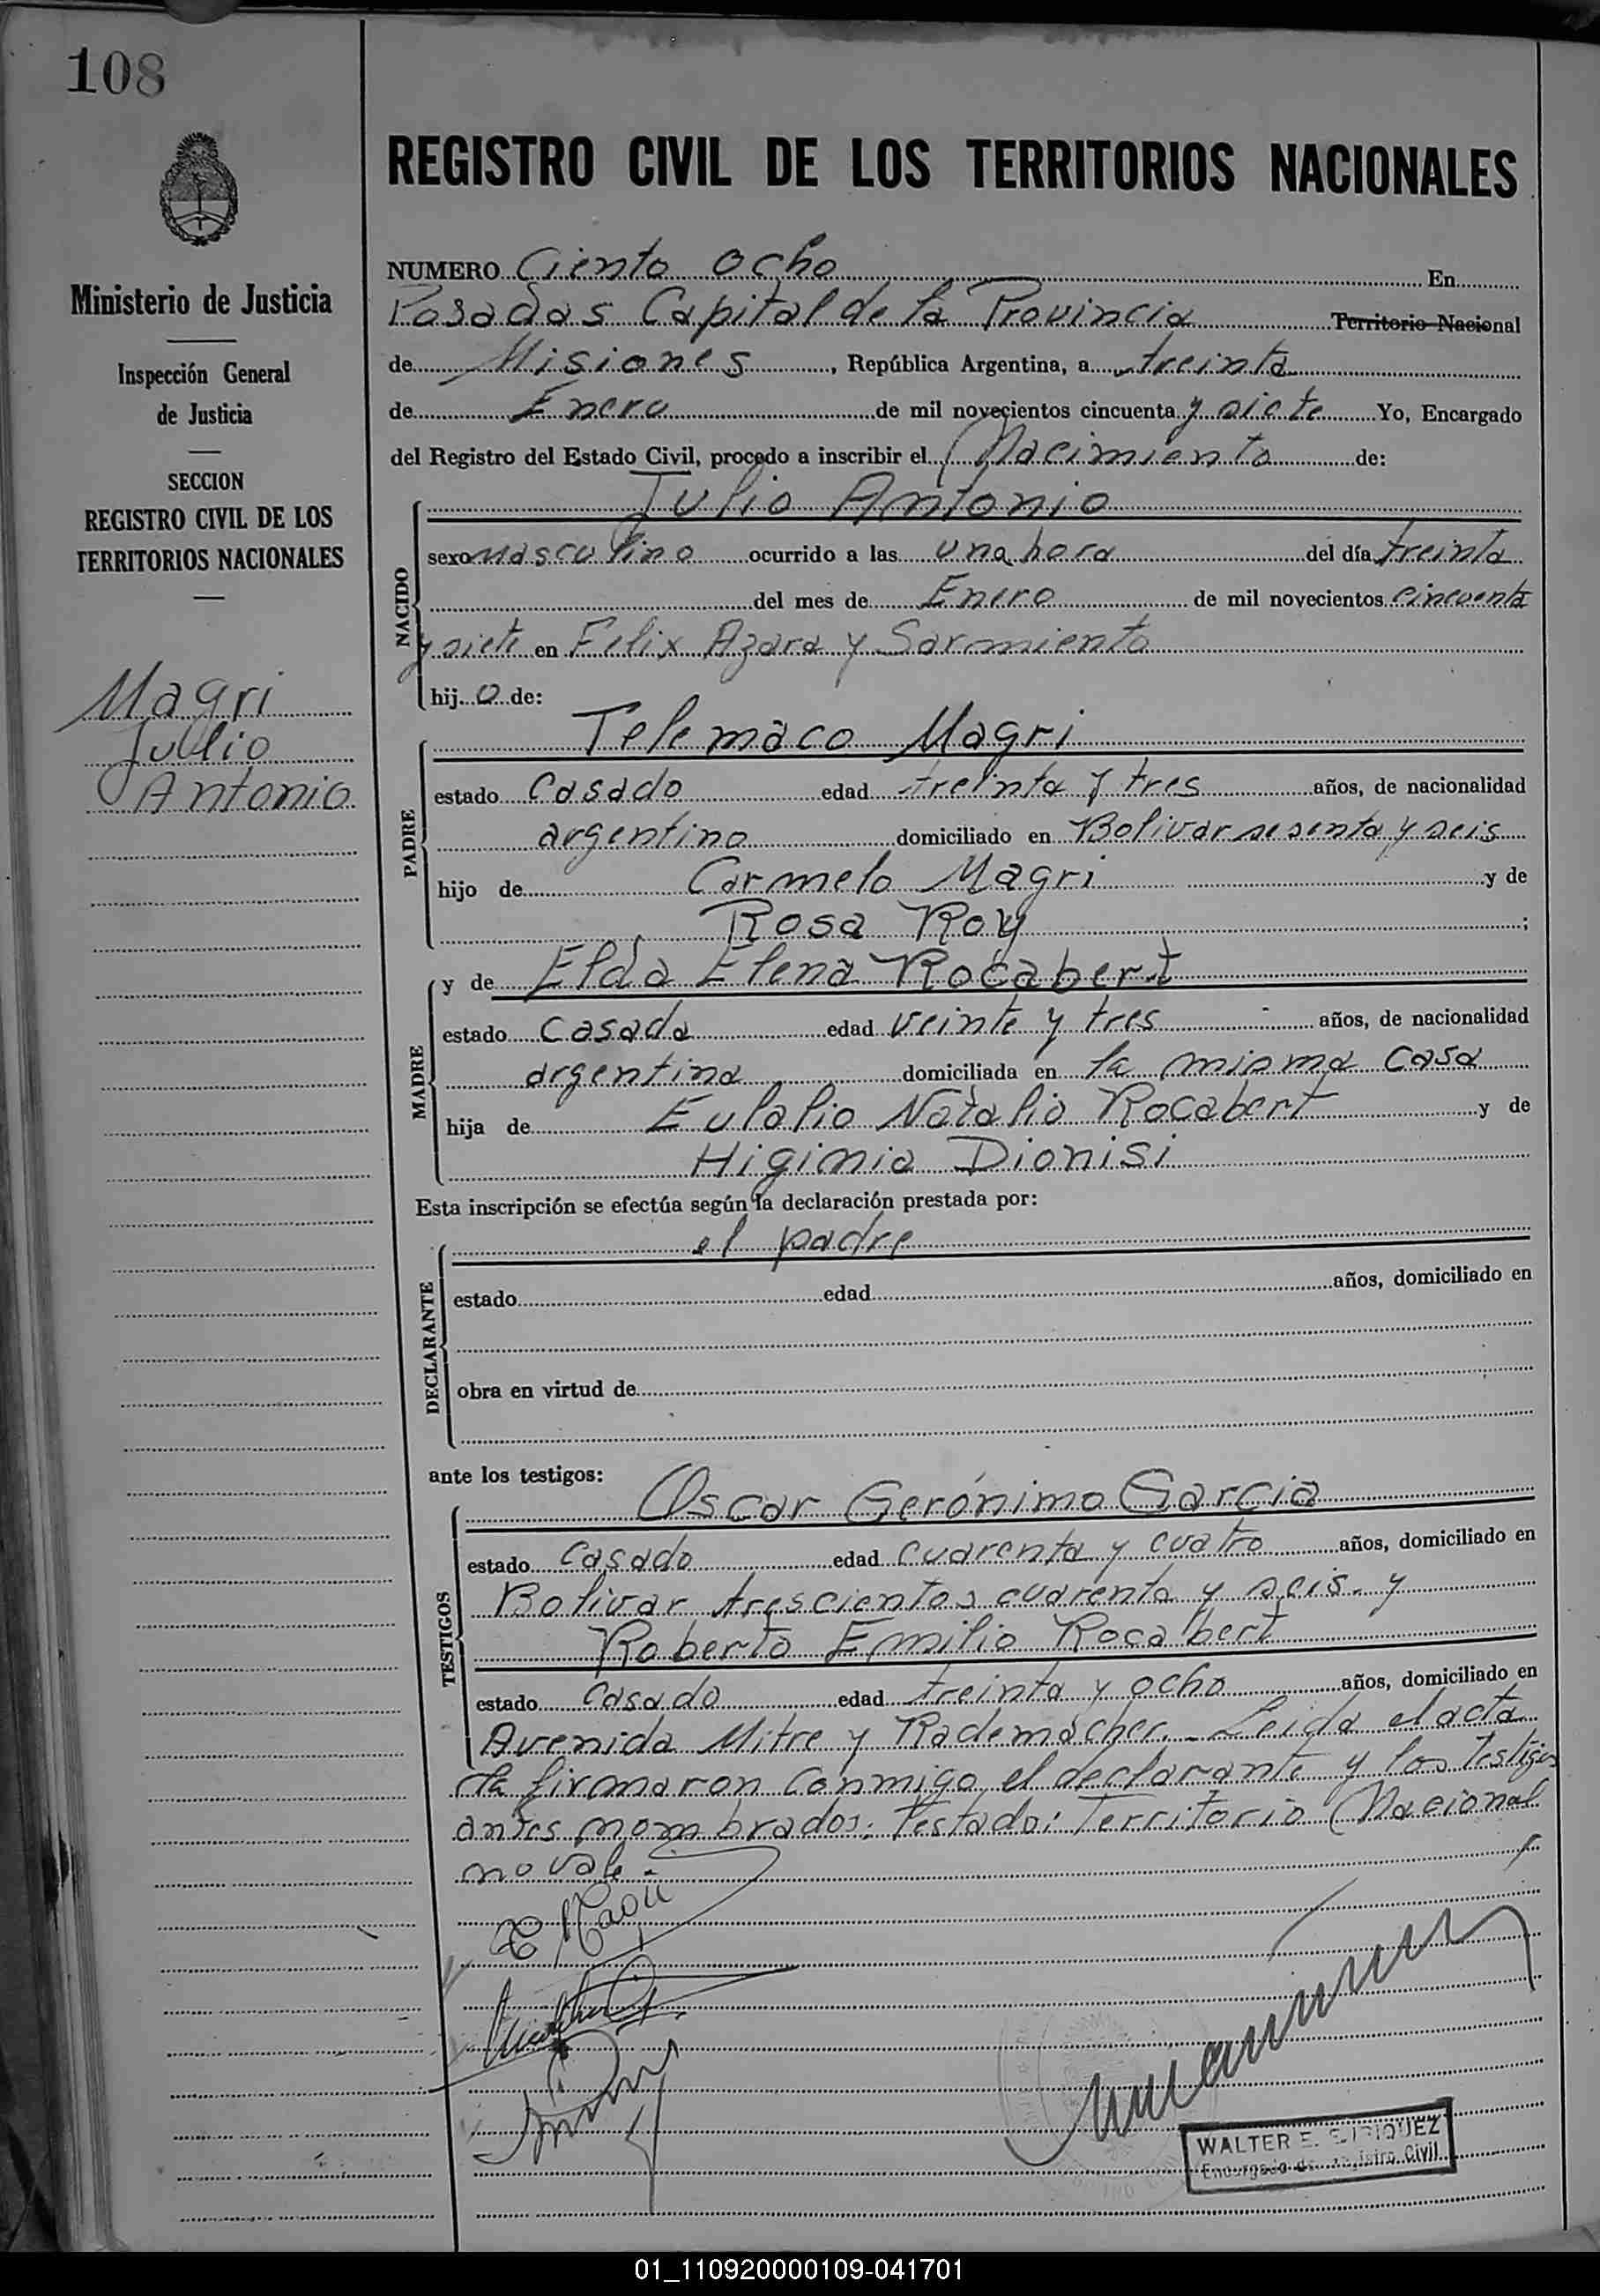 108
Ministerio de Justicia
Inspección General
de Justicia
SECCION
REGISTRO CIVIL DE LOS
TERRITORIOS NACIONALES
Magri
Julio
Antonio
REGISTRO CIVIL DE LOS TERRITORIOS NACIONALES
NUMERO Ciento ocho En
Posadas Capital de la Provincia Territorio Nacional
de Misiones, República Argentina, a treinta
de Enero de mil novecientos cincuenta y siete Yo, Encargado
del Registro del Estado Civil, procedo a inscribir el Nacimiento de:
Julio Antonio
NACIDO
sexo masculino ocurrido a las una hora del día treinta
del mes de Enero de mil novecientos cincuenta
y siete en Felix Azara y Sarmiento
hij o de:
Telemaco Magri
PADRE
estado Casado edad treinta y tres años, de nacionalidad
argentino domiciliado en Bolivar sesenta y seis
hijo de Carmelo Magri y de
Rosa Roy ;
y de Elda Elena Rocabert
MADRE
estado casada edad veinte y tres años, de nacionalidad
argentina domiciliada en la misma casa
hija de Eulalio Natalio Rocabert y de
Higinia Dionisi
Esta inscripción se efectúa según la declaración prestada por:
el padre
DECLARANTE
estado edad años, domiciliado en
obra en virtud de
ante los testigos:
Oscar Gerónimo Garcia
TESTIGOS
estado Casado edad cuarenta y cuatro años, domiciliado en
Bolivar trescientos cuarenta y seis. y
Roberto Emilio Rocabert
estado Casado edad treinta y ocho años, domiciliado en
Avenida Mitre y Rademacher. Leida el acta
la firmaron conmigo el declarante y los testigos
antes nombrados. Testado: Territorio Nacional
no vale.
WALTER E.
Encargado Registro Civil
01_110920000109-041701